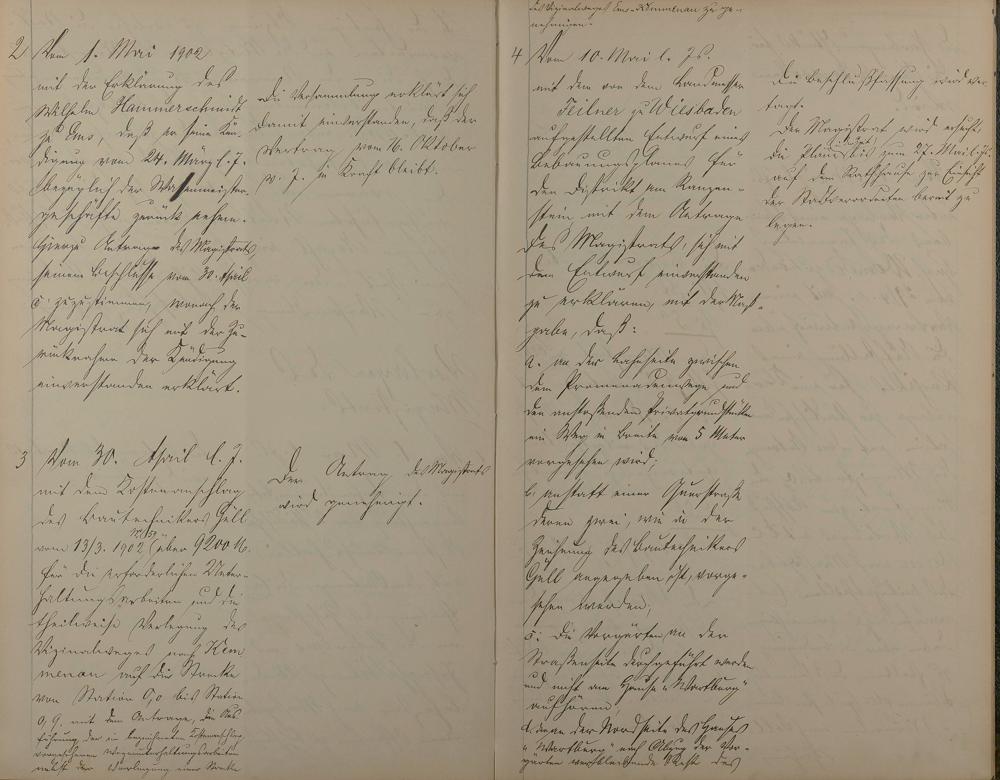 2 Vom 1. Mai 1902
mit der Erklärung des
Wilhelm Hammerschmidt
zu Ems, daß er seine Kün-
digung vom 24. März l. J.
bezüglich der Wasenmeister-
geschäfte zurück nehme.
Hierzu Antrag des Magistrats,
seinem Beschlusse vom 30. April
c. zuzustimmen, wonach der
Magistrat sich mit der Zu-
rücknahme der Kündigung
einverstanden erklärt.
Die Versammlung erklärt sich
damit einverstanden, daß der
Vertrag vom 16. Oktober
v. J. in Kraft bleibt.
3 Vom 30. April l. J.
mit dem Kostenanschlag
des Bautechnikers Gull
vom 13/3. 1902 über 9200 M.
für die erforderlichen Unter-
haltungsarbeiten und die
theilweise Verlegung des
Vizinalweges nach Kem
menau auf die Strecke
von Station 0,0 bis Station
0,9. mit dem Antrage, die Aus
führung der in bezeichneten Kostenanschlag
vorgesehenen Wegeunterhaltungsarbeiten
nebst der Verlegung einer Strecke
Der Antrag des Magistrats
wird genehmigt.
des Vizinalweges Ems-Kemmenau zu ge-
nehmigen.
4 Vom 10. Mai l. Js.
mit dem von dem Landmesser
Teilner zu Wiesbaden
aufgestellten Entwurf eines
Bebauungsplanes für
den Distrikt am Kanzen-
stein mit dem Antrage
des Magistrats, sich mit
dem Entwurf einverstanden
zu erklären, mit der Maß-
gabe, daß:
a. an der Bahnseite zwischen
dem Promenadenwege und
den anstoßenden Privatgrundstücken
ein Weg in Breite von 5 Meter
vorgesehen wird;
b. anstatt einer Querstraße
deren zwei, wie in der
Zeichnung des Bautechnikers
Gull angegeben ist, vorge-
sehen werden;
c. die Vorgärten an der
Straßenseite durchgeführt werden
und nicht am Hause "Wartburg"
aufhören.
d. der an der Nordseite des Hauses
"Wartburg" nach Abzug der Vor-
gärten verbleibende Rest des
Die Beschlußfassung wird ver-
tagt.
Der Magistrat wird ersucht,
die Pläne bis zum 27. Mai l. J.
auf dem Rathhause zur Einsicht
der Stadtverordneten bereit zu
legen.